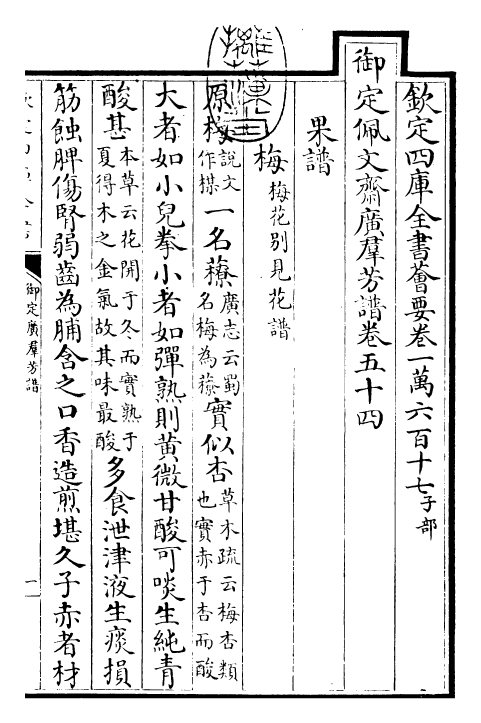 欽定四庫全書薈要卷一萬六百十七子部
御定佩文齋廣羣芳譜卷五十四
果譜
梅梅花別見花譜
原梅說文作楳一名䕩廣志云蜀名梅為䕩實似杏草木疏云梅杏類也實赤于杏而酸
大者如小兒拳小者如彈熟則黄微甘酸可啖生純青
酸甚本草云花開于冬而實熟于夏得木之金氣故其味最酸多食泄津液生痰損
筋蝕脾傷腎弱齒為脯含之口香造煎堪久子赤者材
御定廣羣芳譜
一